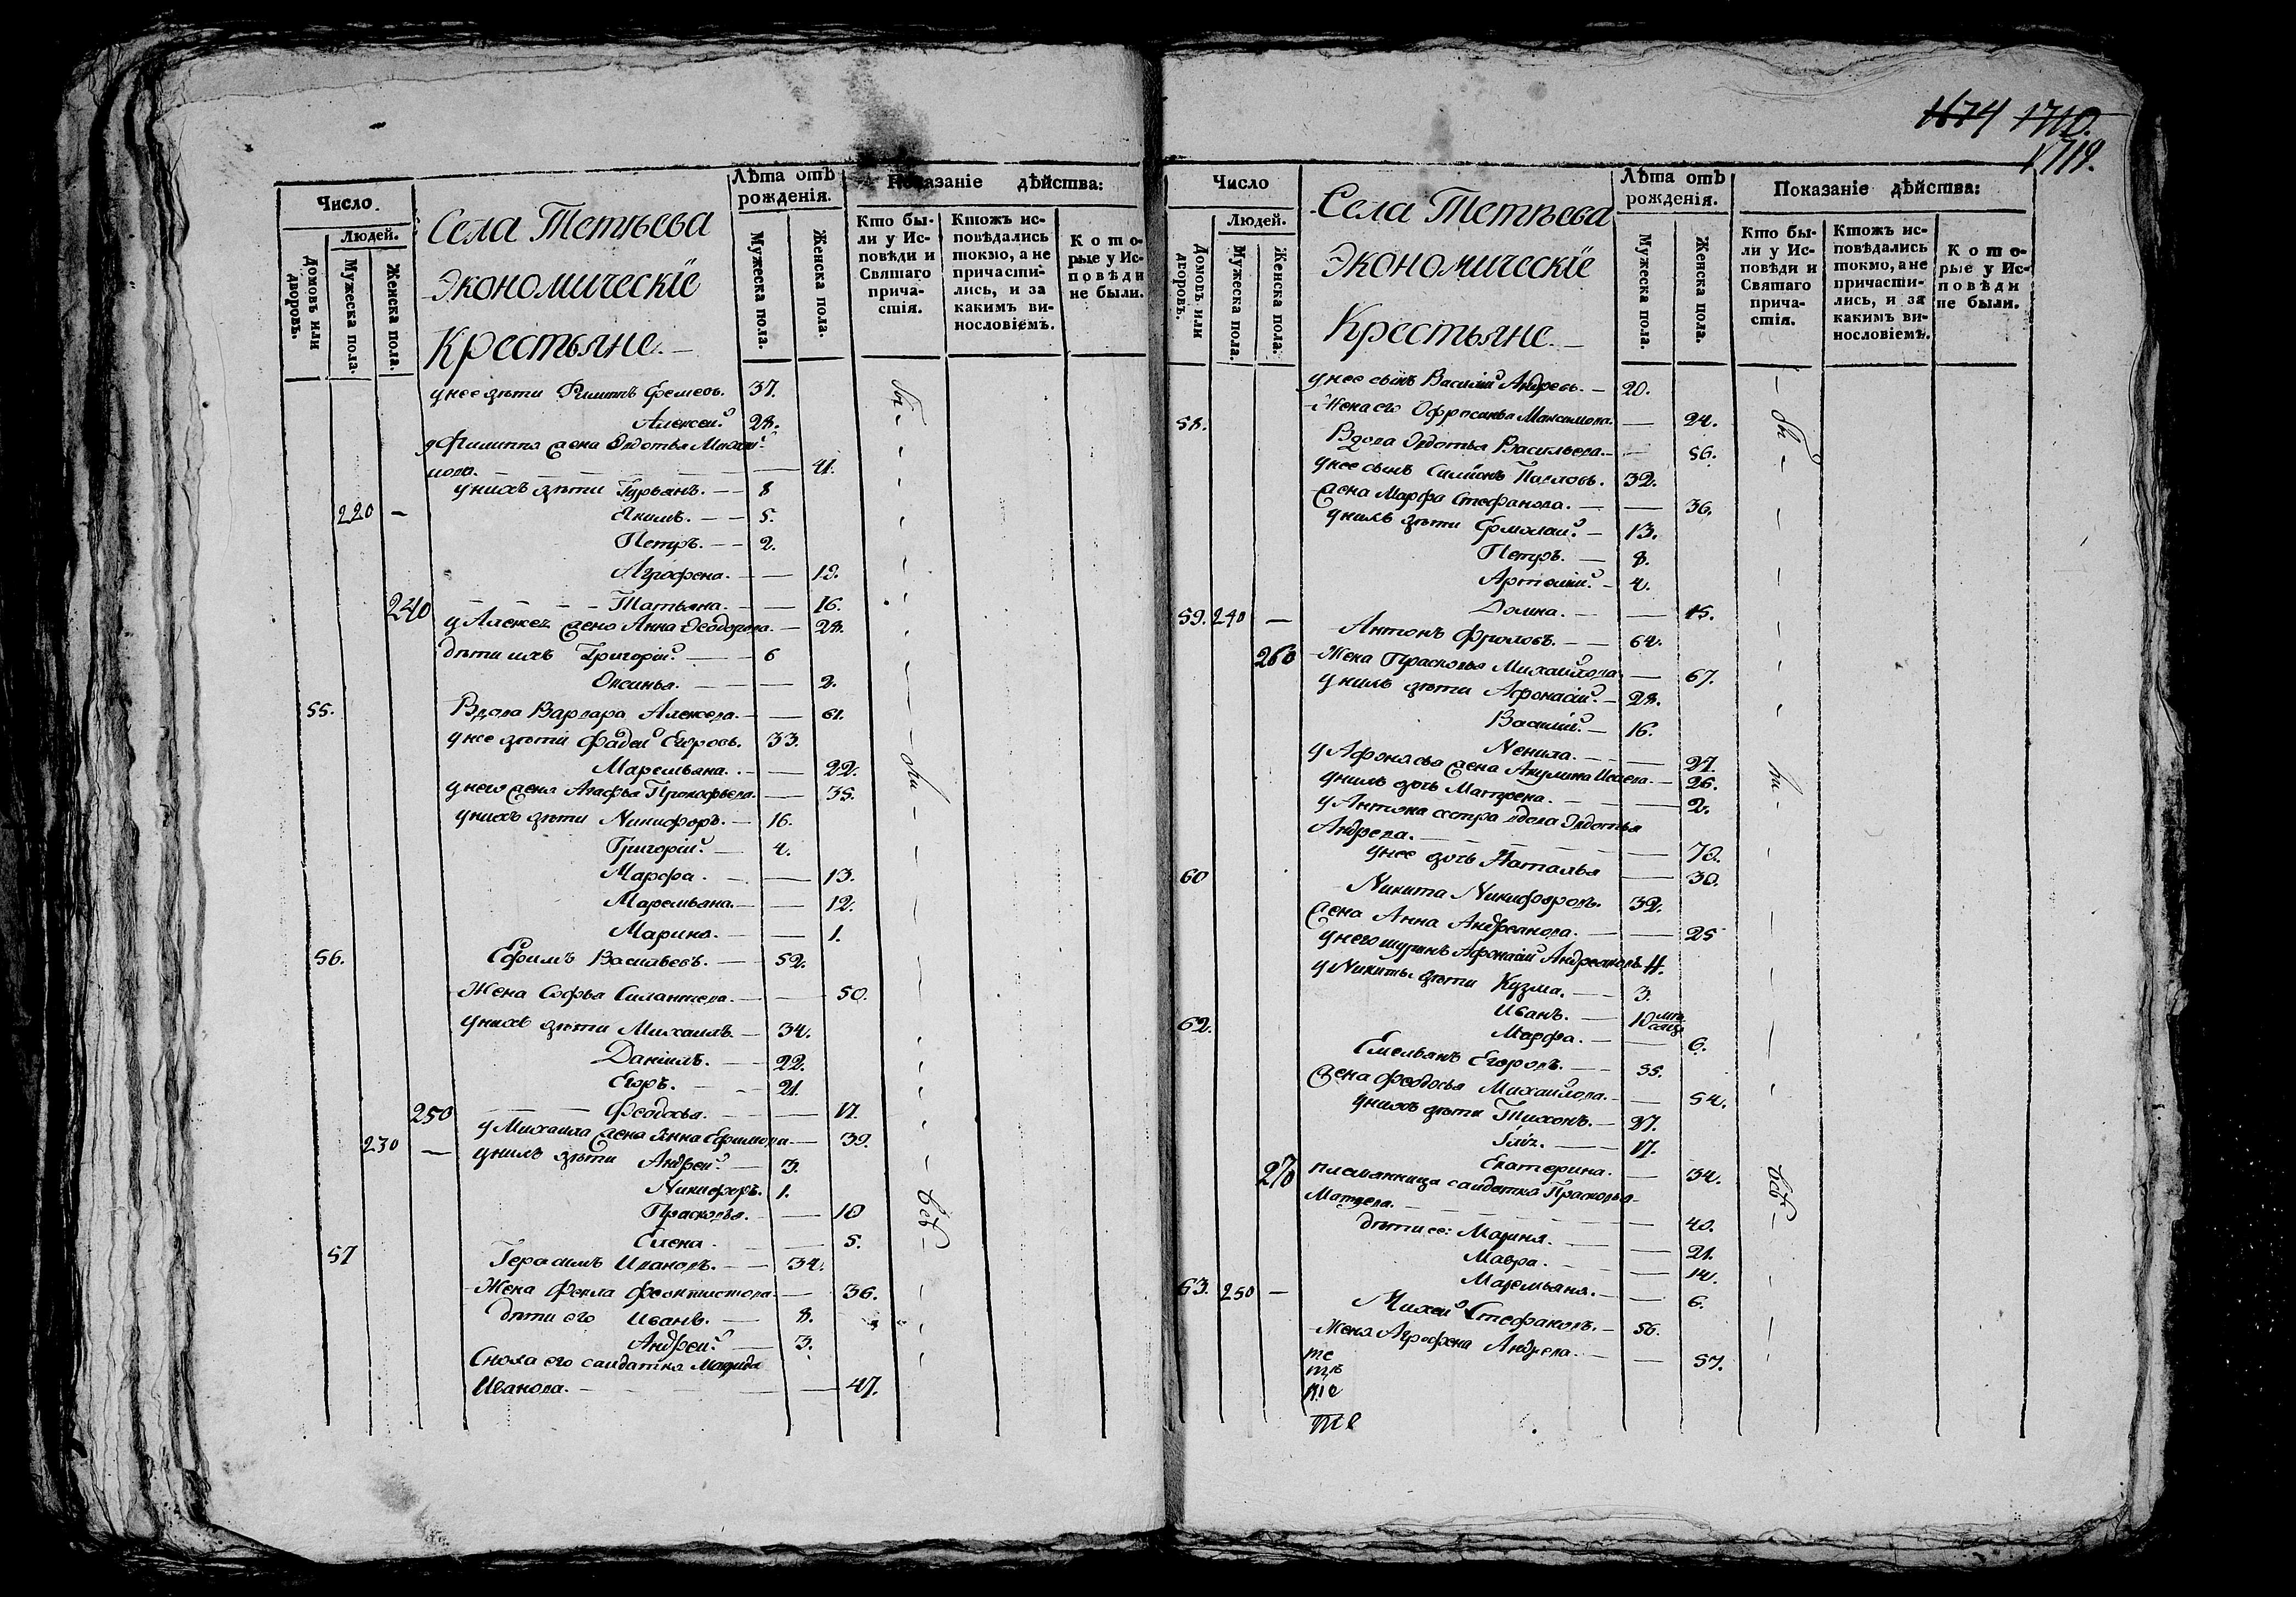 1674 1710.
1719.
Число.
Людей.
Домовъ или дворовъ.
Мужеска пола.
Женска пола.
Села Тетнѣева
Экономическіе
Крестьяне.
Лѣта отъ рожденія.
Мужеска пола.
Женска пола.
Показаніе дѣйства:
Кто бы-
ли у Ис-
повѣди и
Святаго
прича-
стія.
Ктожъ ис-
повѣдались
токмо, а не
причасти-
лись, и за
какимъ ви-
нословіемъ.
Кото-
рые у Ис-
повѣди
не были.
у нее дѣти Филиппъ Еремеевъ. 37.
Алексей 28.
у Филиппа жена Овдотья Михаи-
лова. 41.
у нихъ дѣти Гурьянъ. 8
220 — Якимъ. 5.
Петръ. 2.
Агрофена. 19.
240 Татьяна. 16.
у Алексея жена Анна Феодорова. 28.
дѣти ихъ Григорій. 6
Оксинья. 2.
55. Вдова Варвара Алексеева. 61.
у нее дѣти Фадей Егоровъ. 33.
Маремьяна. 22.
у него жена Агафья Прокофьева. 35.
у нихъ дѣти Никифоръ. 16.
Григорій. 4.
Марфа. 13.
Маремьяна. 12.
Марина. 1.
56. Ефимъ Васильевъ. 52.
Жена Софья Силантева. 50.
у нихъ дѣти Михаилъ. 34.
Даніилъ. 22.
Егоръ. 21.
250 Феодосья. 17.
230 — у Михаила жена Анна Ефимова 39.
у нихъ дѣти Андрей. 3.
Никифоръ. 1.
Прасковья. 10
Елена. 5.
57 Герасимъ Ивановъ. 34.
Жена Фекла Феоктистова. 36.
дѣти его Иванъ. 8.
Андрей. 3.
Сноха его салдатка
Иванова. 47.
Число
Людей.
Домовъ или дворовъ.
Мужеска пола.
Женска пола.
Села Тетнѣева
Экономическіе
Крестьяне.
Лѣта отъ рожденія.
Мужеска пола.
Женска пола.
Показаніе дѣйства:
Кто бы-
ли у Ис-
повѣди и
Святаго
прича-
стія.
Ктожъ ис-
повѣдались
токмо, а не
причасти-
лись, и за
какимъ ви-
нословіемъ.
Кото-
рые у Ис-
повѣди
не были.
у нее сынъ Василій Андревъ. 20.
Жена его Офросинья Максимова. 24.
58. Вдова Овдотья Васильева. 56.
у нее сынъ Симіонъ Павловъ. 32.
жена Марфа Стефанова. 36.
у нихъ дѣти Ермолай. 13.
Петръ. 8.
4.
Домна. 15.
59. 240 — Антонъ Фроловъ. 64.
260 Жена Прасковья Михайлова 67.
у нихъ дѣти Афонасій. 28.
Василій. 16.
Ненила. 27.
у Афонасья жена Акулина 26.
у нихъ дочь Матрена. 2.
у Антона сестра вдова Овдотья
Андреева. 70.
у нее дочь Наталья 30.
60 Никита Никифоровъ. 32.
жена Анна Андреянова. 25
у него шуринъ Афонасій Андреяновъ 11.
у Никиты дѣти Кузма. 3.
Иванъ. 10
Марфа. 6.
62. Емельянъ Егоровъ. 55.
жена Феодосья Михайлова. 54.
у нихъ дѣти Тихонъ. 27.
17.
Екатерина. 34.
270 племянница салдатка Прасковья
40.
дѣти ее: Марина. 21.
Мавра. 14.
Маремьяна. 6.
63. 250 — Михей Стефановъ. 56.
Жена Агрофена Андреева. 57.
те
те